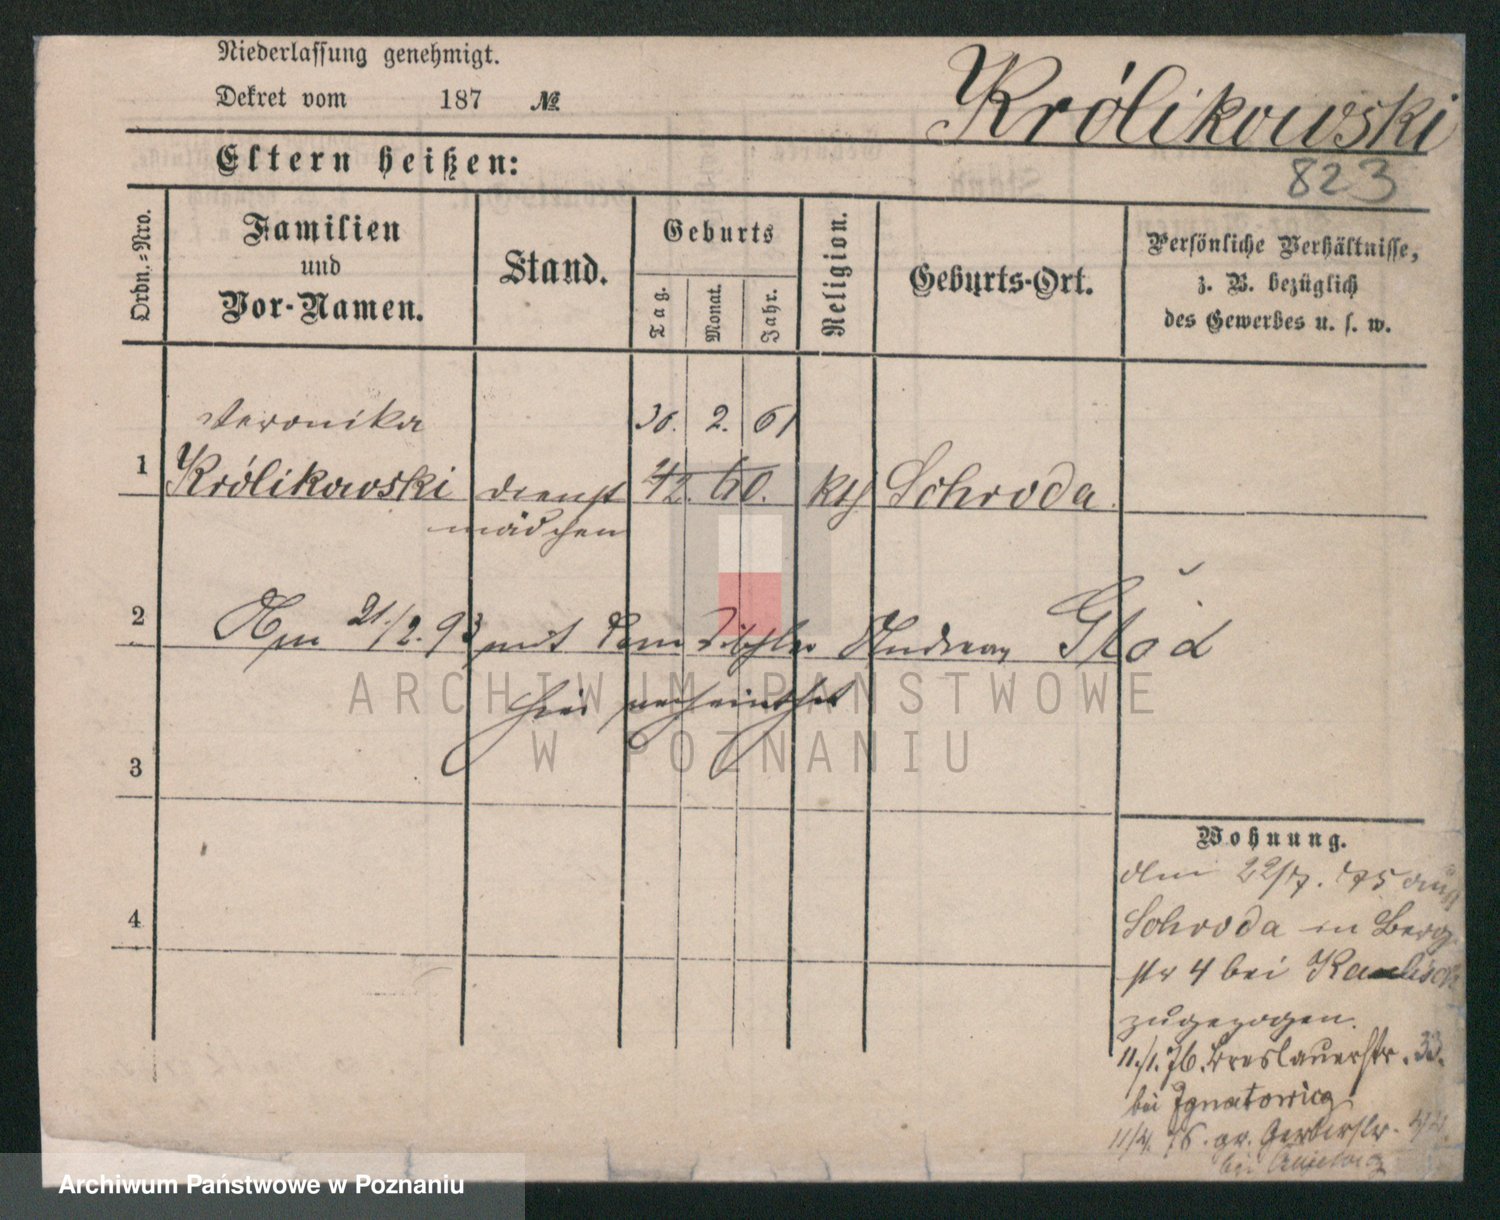 Niederlassung genehmigt.
Dekret vom 187 №
Królikowski
823
Eltern heißen:
Ordn.-Nro.
Familien
und
Vor-Namen.
Stand.
Geburts
Tag.
Monat.
Jahr.
Religion.
Geburts-Ort.
Persönliche Verhältnisse,
z. B. bezüglich
des Gewerbes u. s. w.
Veronika 30. 2. 61
1 Królikowski dienst 42. 60. kth Schroda
mädchen
2 Am 21./2. 93 mit dem Tischler Andreas Głód
hier verheirathet
ARCHIWUM PAŃSTWOWE
W POZNANIU
3
4
Wohnung.
22/7. 75 aus
Schroda in Berg
str 4 bei
zugezogen.
11./1. 76. Breslauerstr. 33.
bei Ignatowicz
11/4. 76. gr. Gerberstr. 44.
bei
Archiwum Państwowe w Poznaniu